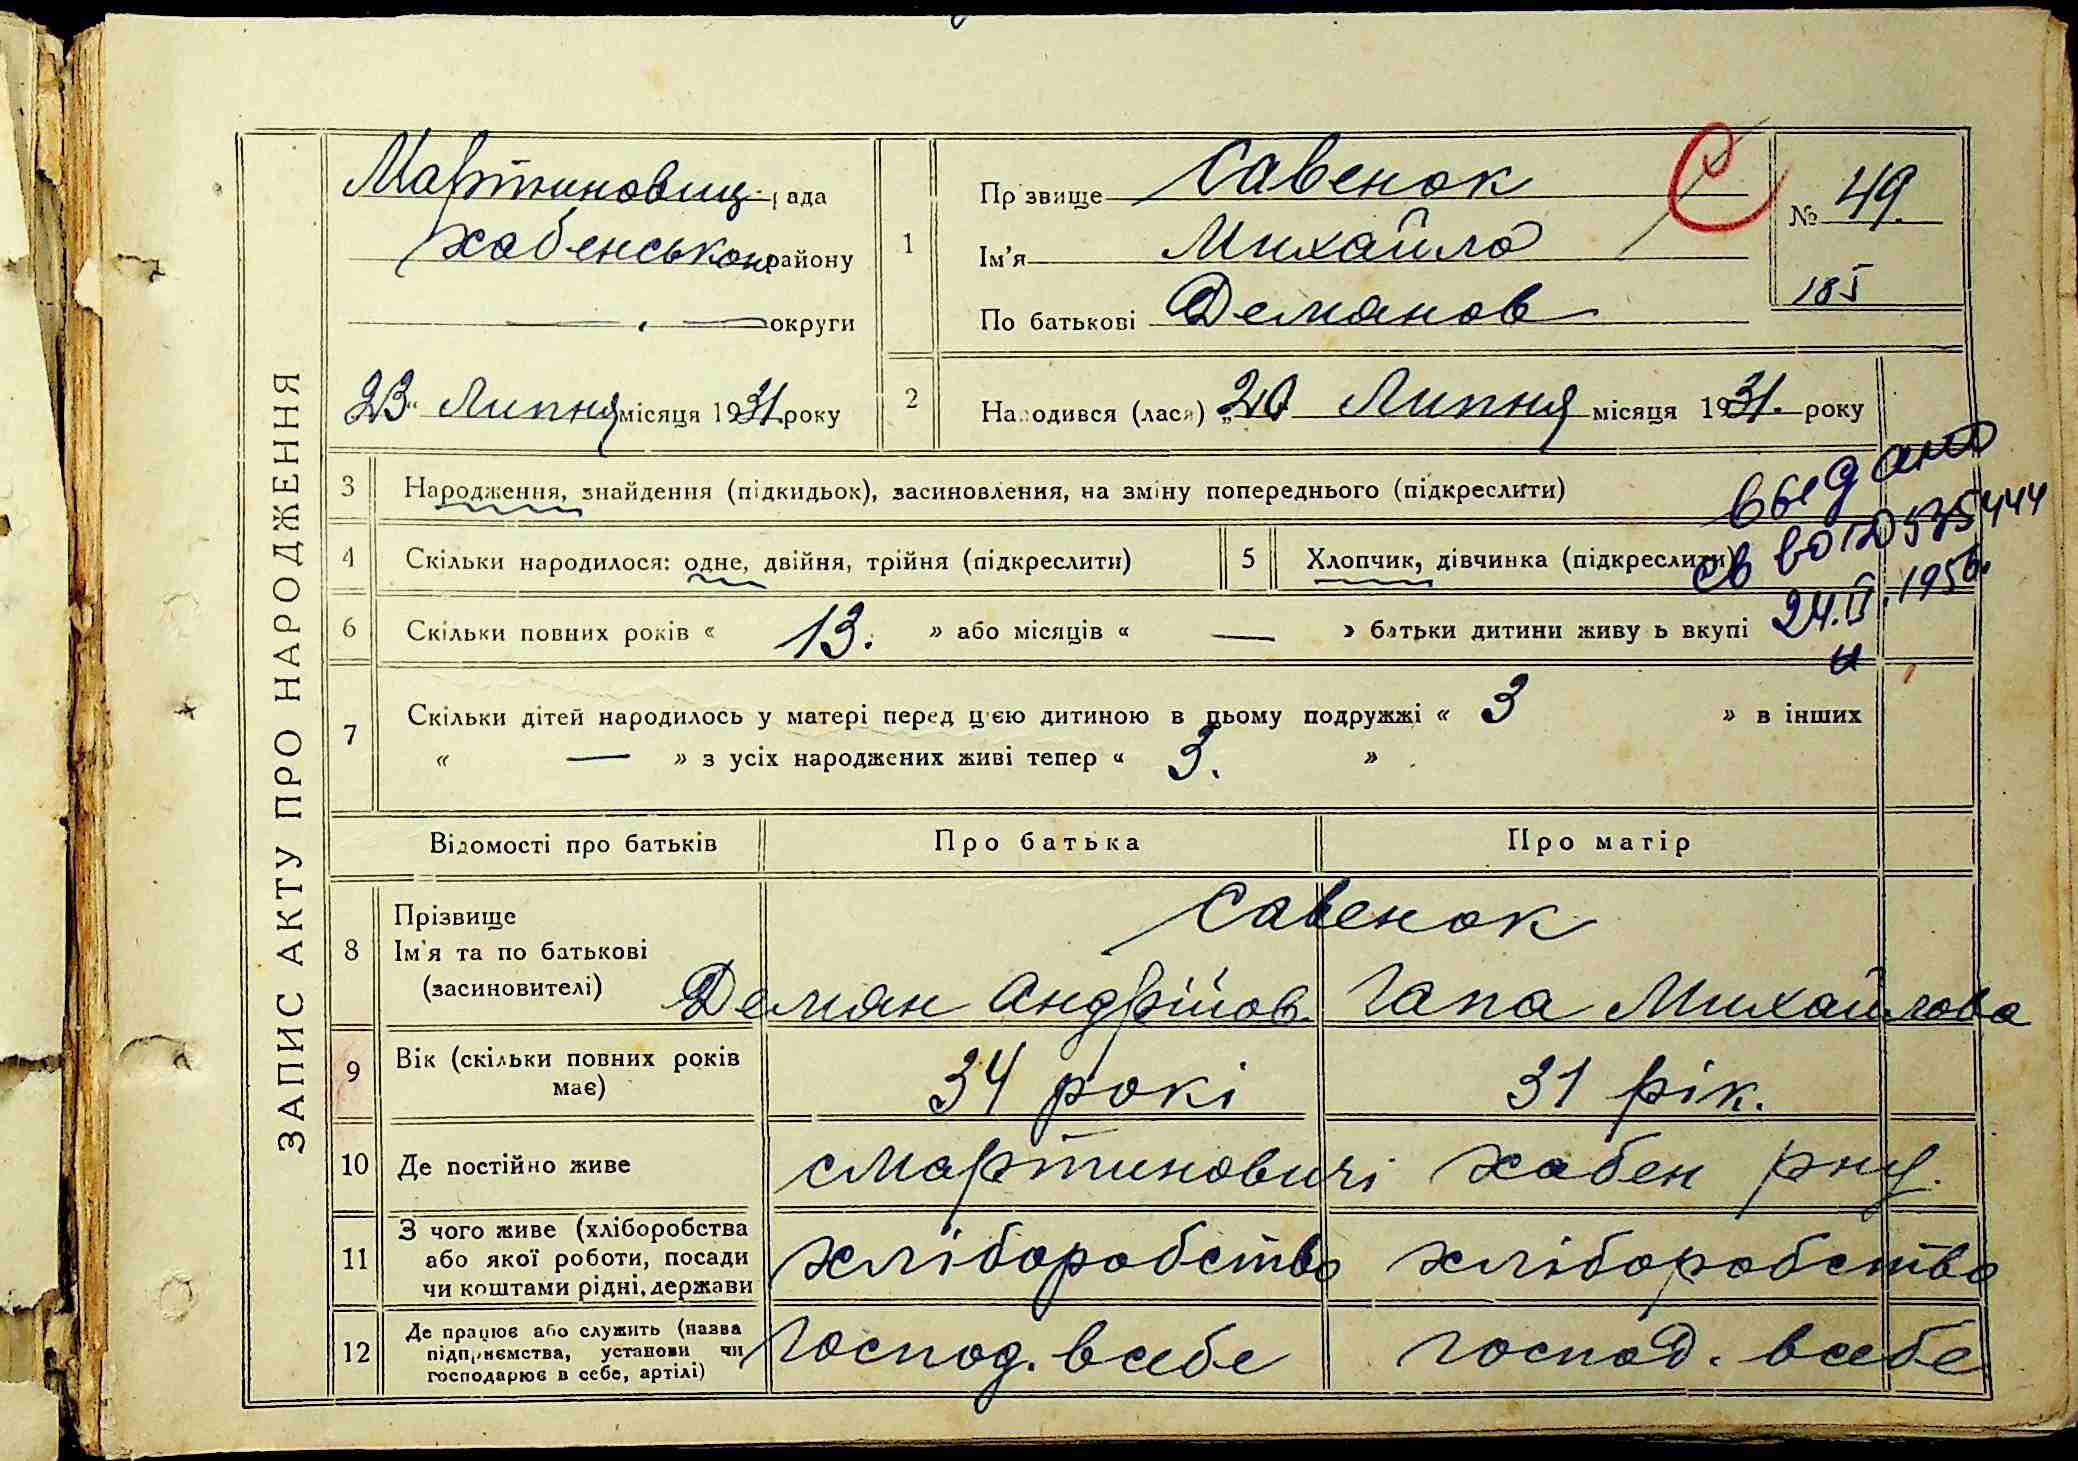 ЗАПИС АКТУ ПРО НАРОДЖЕННЯ
Мартиновиц. рада
Хабенського району
— округи
23 " Липня місяця 1931. року
1
Прізвище Савенок
Ім'я Михайло
По батькові Деманов
С
№ 49.
185
2
Народився (лася) „20 Липня місяця 1931. року
3 Народження, знайдення (підкидьок), засиновлення, на зміну попереднього (підкреслити)
4 Скільки народилося: одне, двійня, трійня (підкреслити)
5 Хлопчик, дівчинка (підкреслити)
выдано
св
24.II.1956.
6 Скільки повних років « 13. » або місяців « — » батьки дитини живуть вкупі
7 Скільки дітей народилось у матері перед цією дитиною в цьому подружжі « 3 » в інших
« — » з усіх народжених живі тепер « 3. »
Відомості про батьків Про батька Про матір
8 Прізвище
Ім'я та по батькові
(засиновителі)
Савенок
Демян Андрійов. Гапа Михайлова
9 Вік (скільки повних років
має)
34 рокі 31 рік.
10 Де постійно живе смартиновичі хабен рну.
11 З чого живе (хліборобства
або якої роботи, посади
чи коштами рідні, держави
хліборобство хліборобство
12 Де працює або служить (назва
підприємства, установи чи
господарює в себе, артілі)
Господ. всебе господ. всебе